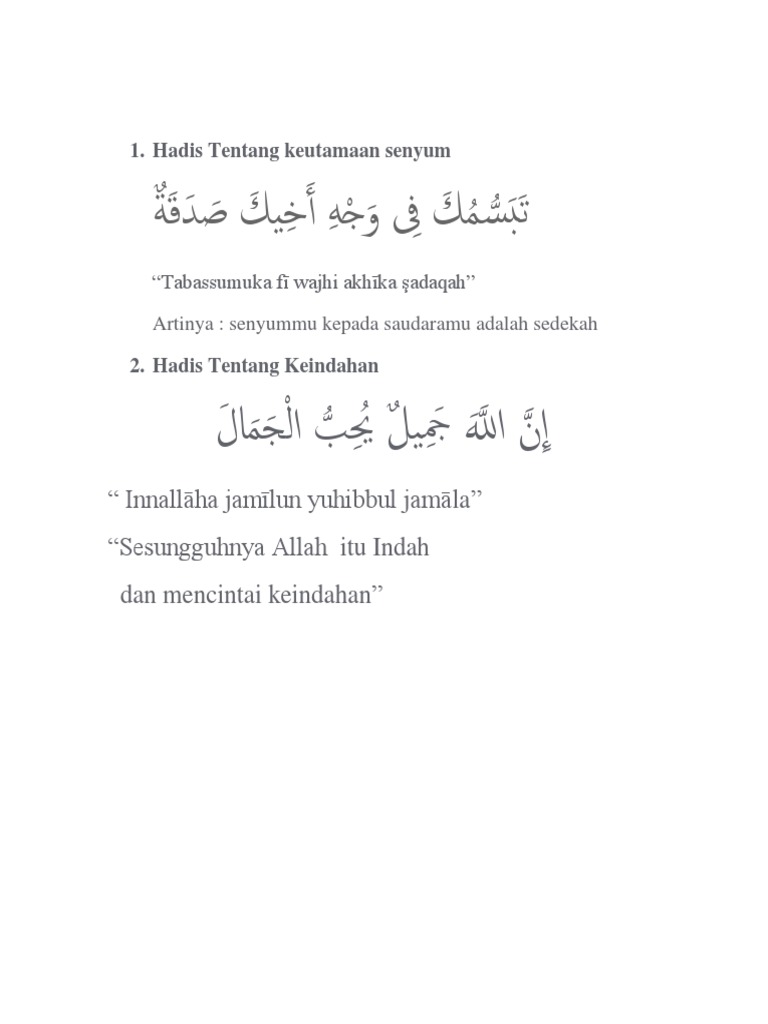 1. Hadis Tentang keutamaan senyum
تَبَسُّمُكَ فِى وَجْهِ أَخِيكَ صَدَقَةٌ
“Tabassumuka fī wajhi akhīka şadaqah”
Artinya : senyummu kepada saudaramu adalah sedekah
2. Hadis Tentang Keindahan
إِنَّ اللَّهَ جَمِيلٌ يُحِبُّ الْجَمَالَ
“ Innallāha jamīlun yuhibbul jamāla”
“Sesungguhnya Allah  itu Indah
dan mencintai keindahan”